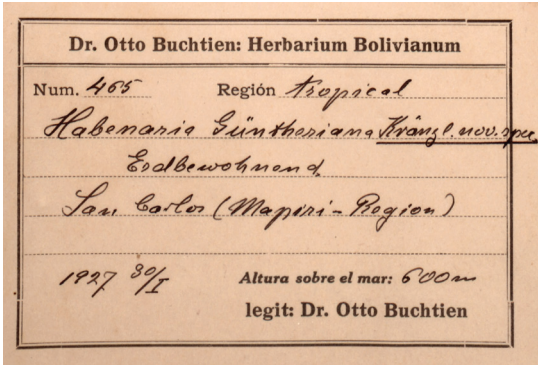 Dr. Otto Buchtien: Herbarium Bolivianum
Num. 465 Región tropical
Habenaria Güntheriana Kränzl. nov. spec.
Erdbewohnend.
San Carlos (Mapiri-Region)
1927 30/I Altura sobre el mar: 600m
legit: Dr. Otto Buchtien